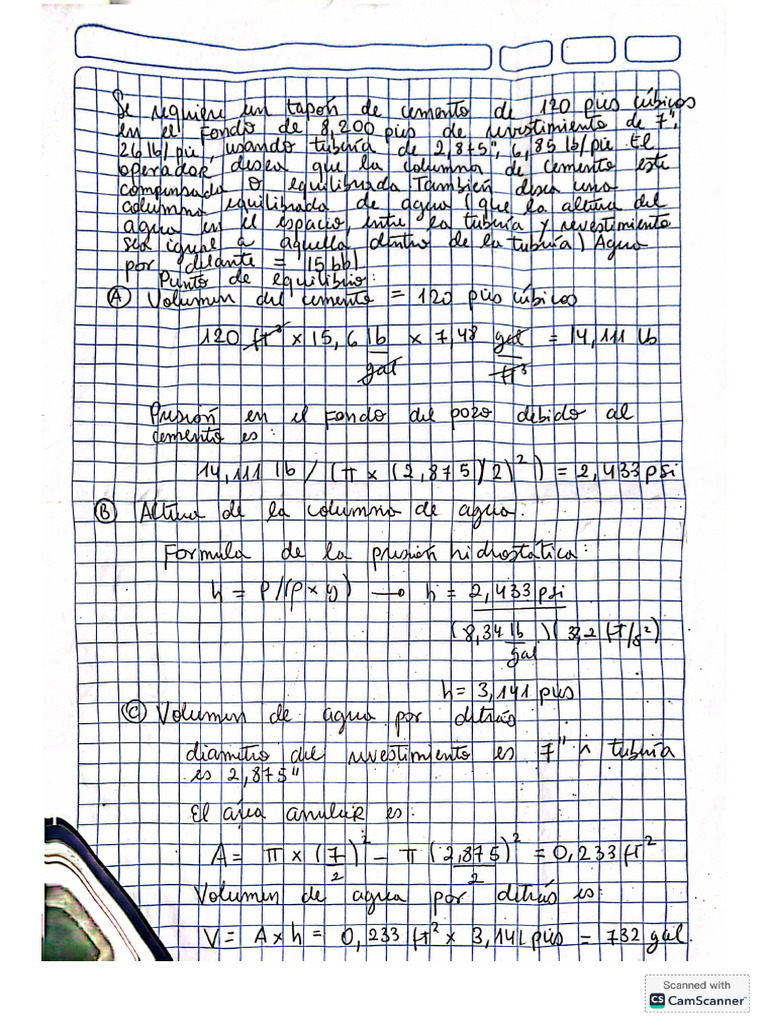 Se requiere un tapón de cemento de 120 pies cúbicos
en el fondo de 8,200 pies de revestimiento de 7",
26 lb/pie, usando tubería de 2,875", 6,85 lb/pie El
operador desea que la columna de cemento esté
compensada o equilibrada También desea una
columna equilibrada de agua (que la altura del
agua en el espacio, entre la tubería y revestimiento
sea igual a aquella dentro de la tubería) Agua
por delante = 15 bbl
Punto de equilibrio:
(A) Volumen del cemento = 120 pies cúbicos
120 ft³ × 15,6 lb/gal × 7,48 gal/ft³ = 14,111 lb
Presión en el fondo del pozo debido al
cemento es:
14,111 lb / (π × (2,875)/2)²) = 2,433 psi
(B) Altura de la columna de agua.
Formula de la presión hidrostática:
h = P/(ρ × g) → h = 2,433 psi / (8,34 lb/gal)(32,2 ft/s²)
h = 3,141 pies
(C) Volumen de agua por detrás
diametro del revestimiento es 7" ^ tubería
es 2,875"
El área anular es:
A = π × (7/2)² - π (2,875/2)² = 0,233 ft²
Volumen de agua por detrás es:
V = A × h = 0,233 ft² × 3,141 pies = 732 gal.
Scanned with
CS CamScanner